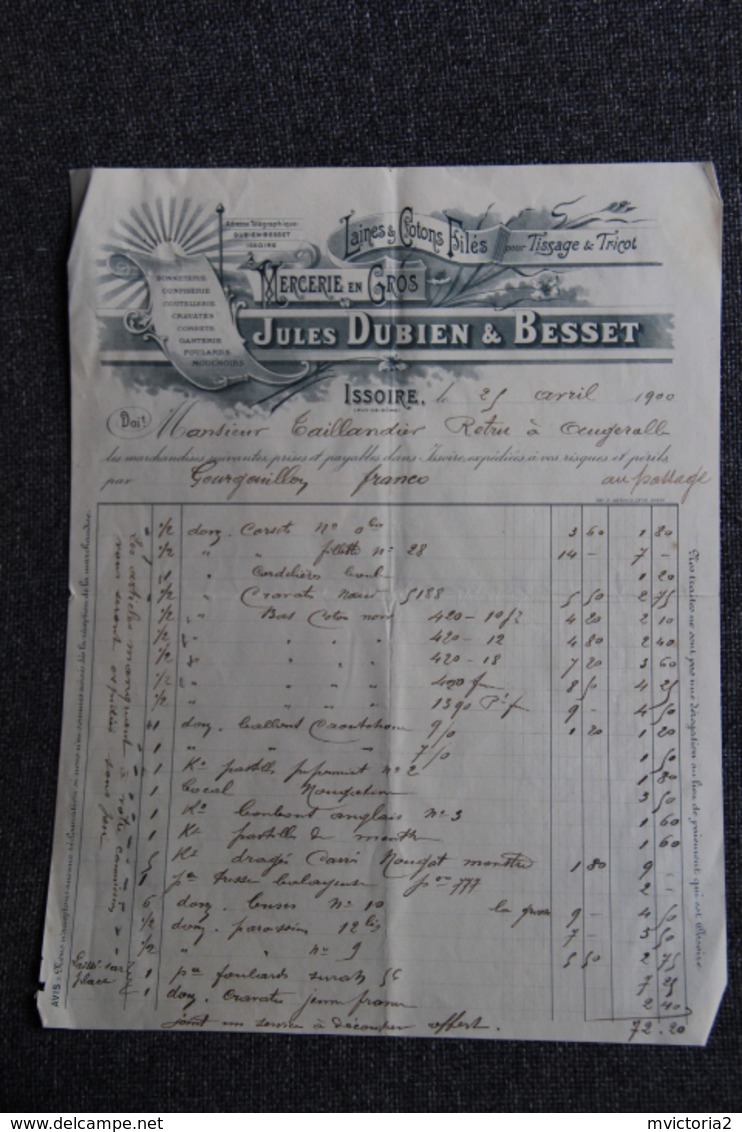 Adresse Télégraphique:
DUBIEN-BESSET
ISSOIRE
Laines & Cotons Filés pour Tissage & Tricot
MERCERIE EN GROS
JULES DUBIEN & BESSET
BONNETERIE
CONFISERIE
COUTELLERIE
CRAVATES
CORSETS
GANTERIE
FOULARDS
MOUCHOIRS
ISSOIRE, le 25 avril 1900
(PUY-DE-DÔME)
Doit Monsieur Taillandier Retru à
les marchandises suivantes prises et payables dans Issoire, expédiées à vos risques et périls
par franco au passage
1/2 douz. Corsets N° 3 60 1 80
1/2 " " fillette N° 28 14 - 7 -
1 " Cordelières 1 20
1/2 " Cravates 5188 5 50 2 75
1/2 " Bas Coton noir 420-10 4 20 2 10
1/2 " " " " 420-12 4 80 2 40
1/2 " " " " 420-18 7 20 3 60
1/2 " " " " 8 50 4 25
1/2 " " " " 1390 9 - 4 50
1 douz. ballons Caoutchouc 9/0 1 20 1 20
1 " " " 7/0 1 50
1 K° pastilles N° 2 1 80
1 bocal 3 50
1 K° bonbons anglais N° 3 1 60
1 K° pastilles de menthe 1 60
5 K° dragé Carré Nougat 1 80 9 -
1 777 2 -
6 douz. N° 10 la grosse 9 - 4 50
1/2 douz. 12 bis 7 - 3 50
1/2 " " N° 9 5 50 2 75
1 foulards surah 56 7 25
1 douz. Cravates 2 40
joint un service à découper offert. 72.20
Les articles manquant à votre commission vous seront expédiés sous peu
AVIS.
de la réception de la marchandise.
Nos traites ne sont pas une dérogation au lieu de paiement qui est Issoire
delcampe.net
mvictoria2